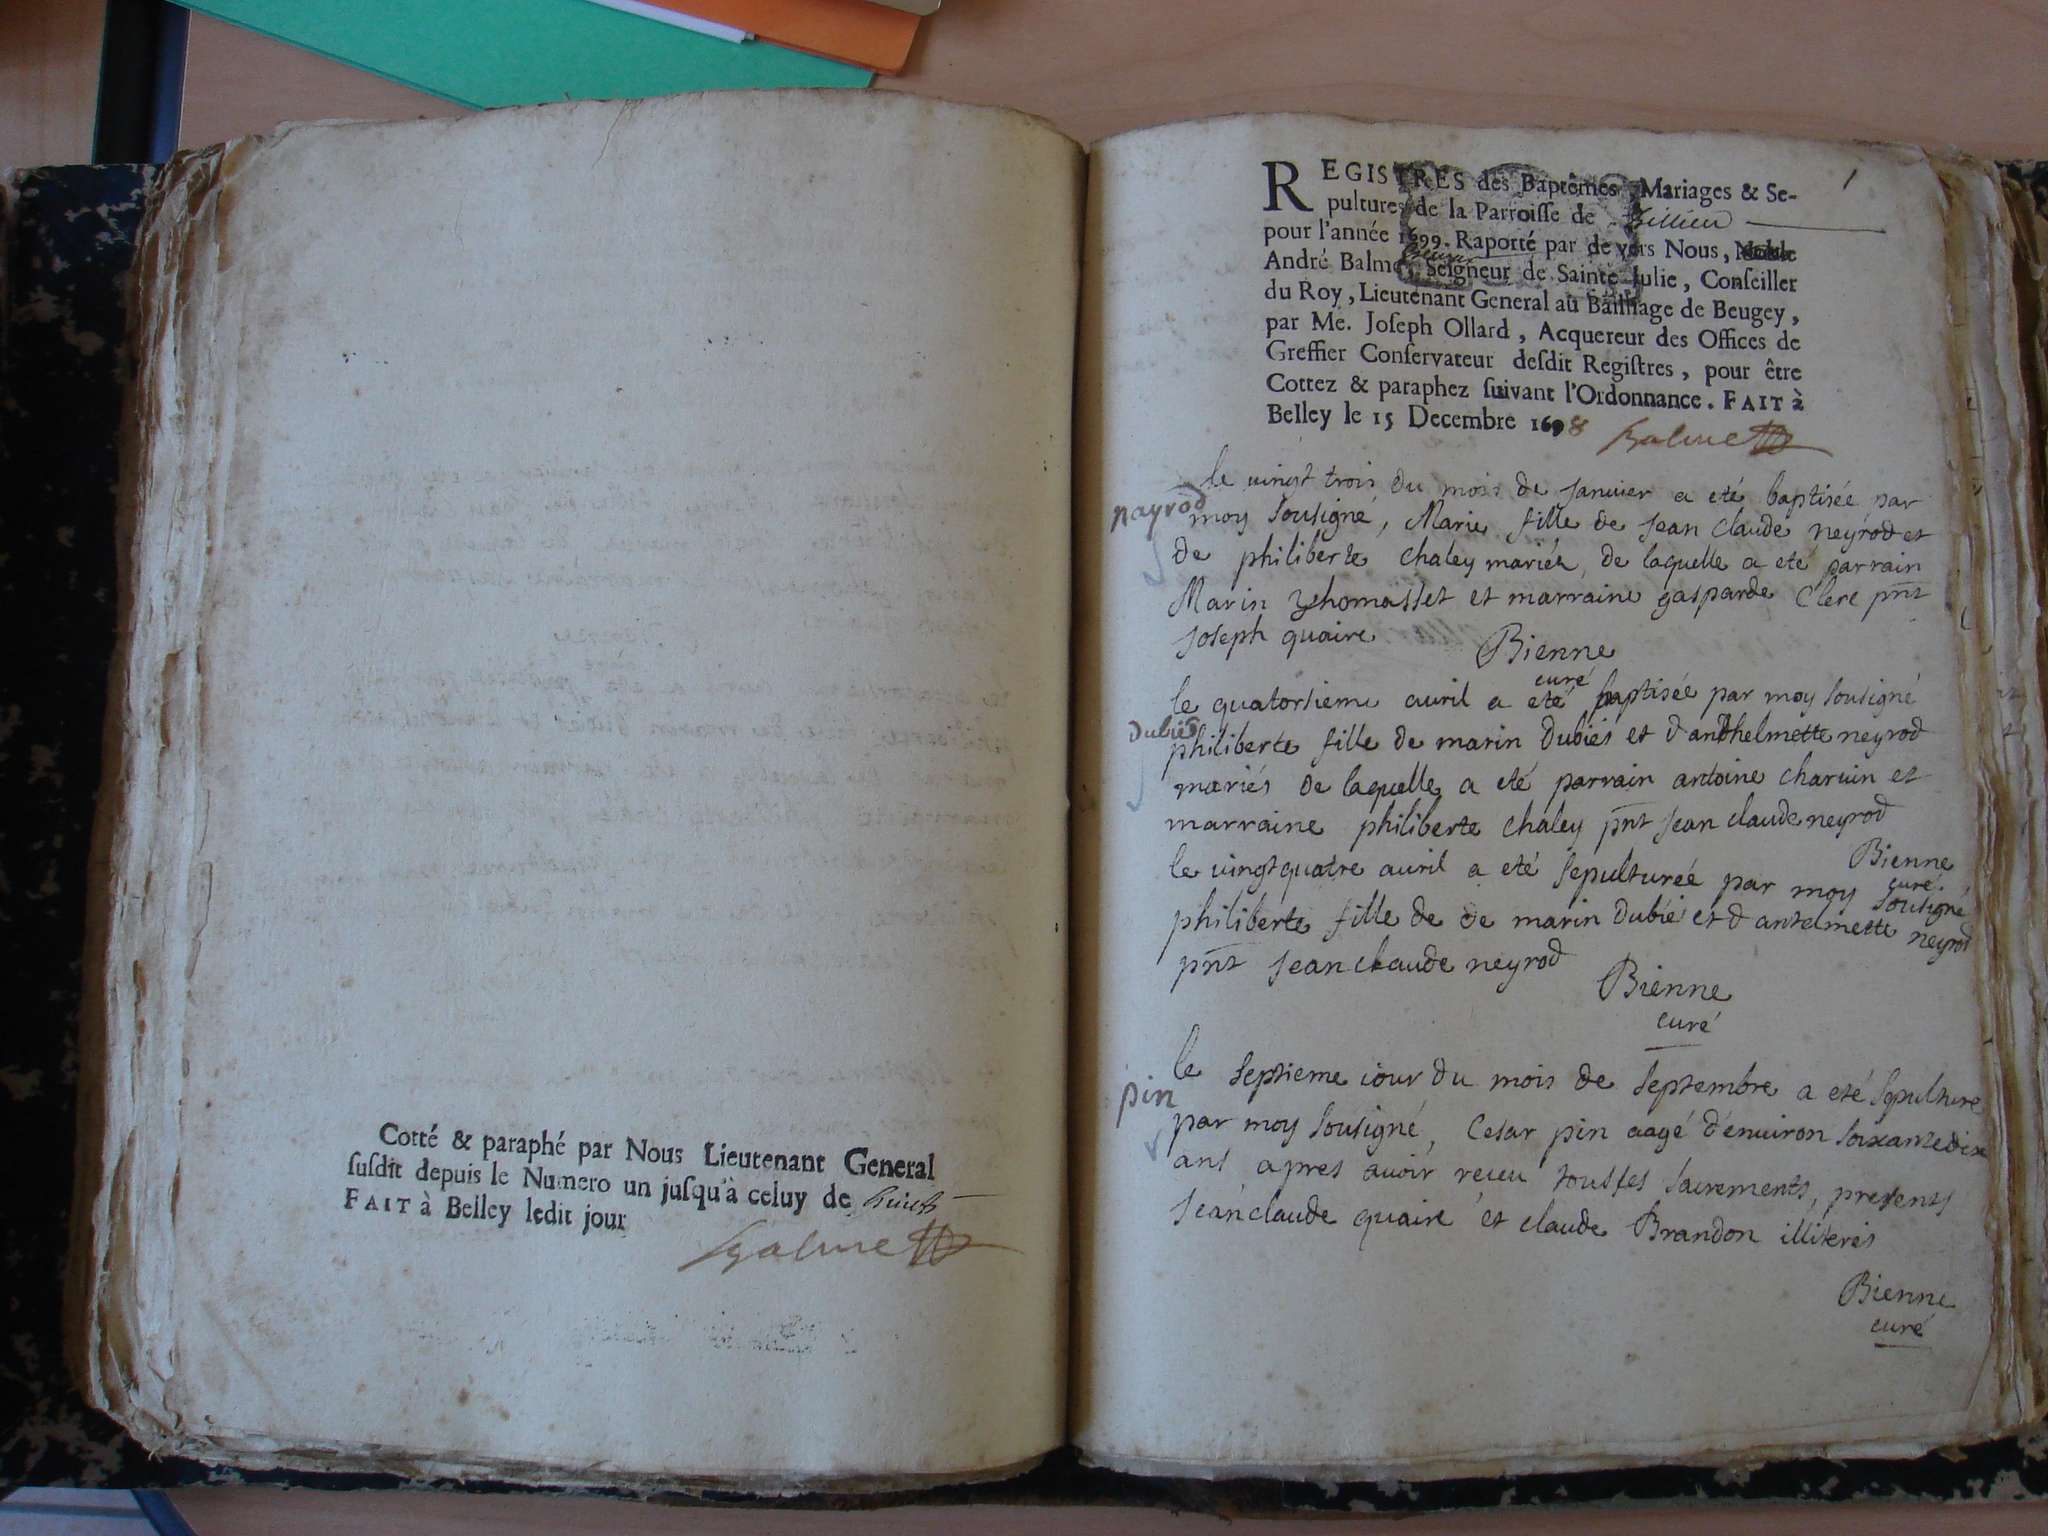 Cotté & paraphé par Nous Lieutenant General
susdit depuis le Numero un jusqu'à celuy de huict
FAIT à Belley ledit jour
Balme
1
REGISTRES des Baptêmes, Mariages & Se-
pultures de la Parroisse de Billieu
pour l'année 1699. Raporté par devers Nous, Noble
André Balme, Seigneur de Sainte Julie, Conseiller
du Roy, Lieutenant General au Bailliage de Beugey,
par Me. Joseph Ollard, Acquereur des Offices de
Greffier Conservateur desdit Registres, pour être
Cottez & paraphez suivant l'Ordonnance. FAIT à
Belley le 15 Decembre 1698
Balme
nayrod
le vingt trois du mois de janvier a eté baptisée par
moy sousigné, Marie fille de jean claude neyrod et
de philiberte chaley mariés, de laquelle a eté parrain
Marin thomasset et marraine gasparde Clere pñt
joseph quaire
Bienne
curé
dubié
le quatorsieme avril a eté baptisée par moy sousigné
philiberte fille de marin dubiés et d'anthelmette neyrod
mariés de laquelle a eté parrain antoine charvin et
marraine philiberte chaley pñt jean claude neyrod
Bienne
curé
le vingtquatre avril a eté sepulturéé par moy sousigné
philiberte fille de de marin dubié et d'antelmette neyrod
pñt jean claude neyrod
Bienne
curé
pin
le septieme iour du mois de septembre a eté sepulturé
par moy sousigné, Cesar pin aagé d'environ soixantedix
ans apres avoir receu tous ses sacrements, presents
jean claude quaire et claude Brandon illiterés
Bienne
curé